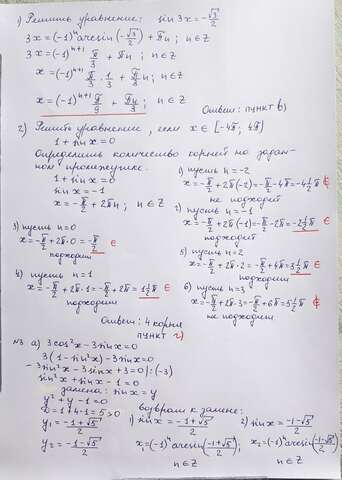 1) Решить уравнение: sin 3x = -√3/2
3x = (-1)ⁿ arcsin(-√3/2) + πn; n ∈ Z
3x = (-1)ⁿ⁺¹ π/3 + πn; n ∈ Z
x = (-1)ⁿ⁺¹ π/3 · 1/3 + πn/3; n ∈ Z
x = (-1)ⁿ⁺¹ π/9 + πn/3; n ∈ Z
Ответ: пункт в)
2) Решить уравнение, если x ∈ [-4π; 4π]
1 + sin x = 0
Определить количество корней на задан-
ном промежутке.
1 + sin x = 0
sin x = -1
x = -π/2 + 2πn; n ∈ Z
1) пусть n = -2
x = -π/2 + 2π(-2) = -π/2 - 4π = -4½π ∉
не подходит
2) пусть n = -1
x = -π/2 + 2π(-1) = -π/2 - 2π = -2½π ∈
подходит
3) пусть n = 0
x = -π/2 + 2π·0 = -π/2 ∈
подходит
4) пусть n = 1
x = -π/2 + 2π·1 = -π/2 + 2π = 1½π ∈
подходит
5) пусть n = 2
x = -π/2 + 2π·2 = -π/2 + 4π = 3½π ∈
подходит
6) пусть n = 3
x = -π/2 + 2π·3 = -π/2 + 6π = 5½π ∉
не подходит
Ответ: 4 корня
пункт г)
№3. а) 3cos²x - 3sin x = 0
3(1 - sin²x) - 3sin x = 0
-3sin²x - 3sin x + 3 = 0 | :(-3)
sin²x + sin x - 1 = 0
замена: sin x = y
y² + y - 1 = 0
D = 1 + 4·1 = 5 > 0
y₁ = (-1+√5)/2
y₂ = (-1-√5)/2
возврат к замене:
1) sin x = (-1+√5)/2
x₁ = (-1)ⁿ arcsin((-1+√5)/2);
n ∈ Z
2) sin x = (-1-√5)/2
x₂ = (-1)ⁿ arcsin((-1-√5)/2)
n ∈ Z